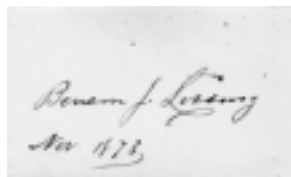 Benson J. Lossing
Nov 1873,